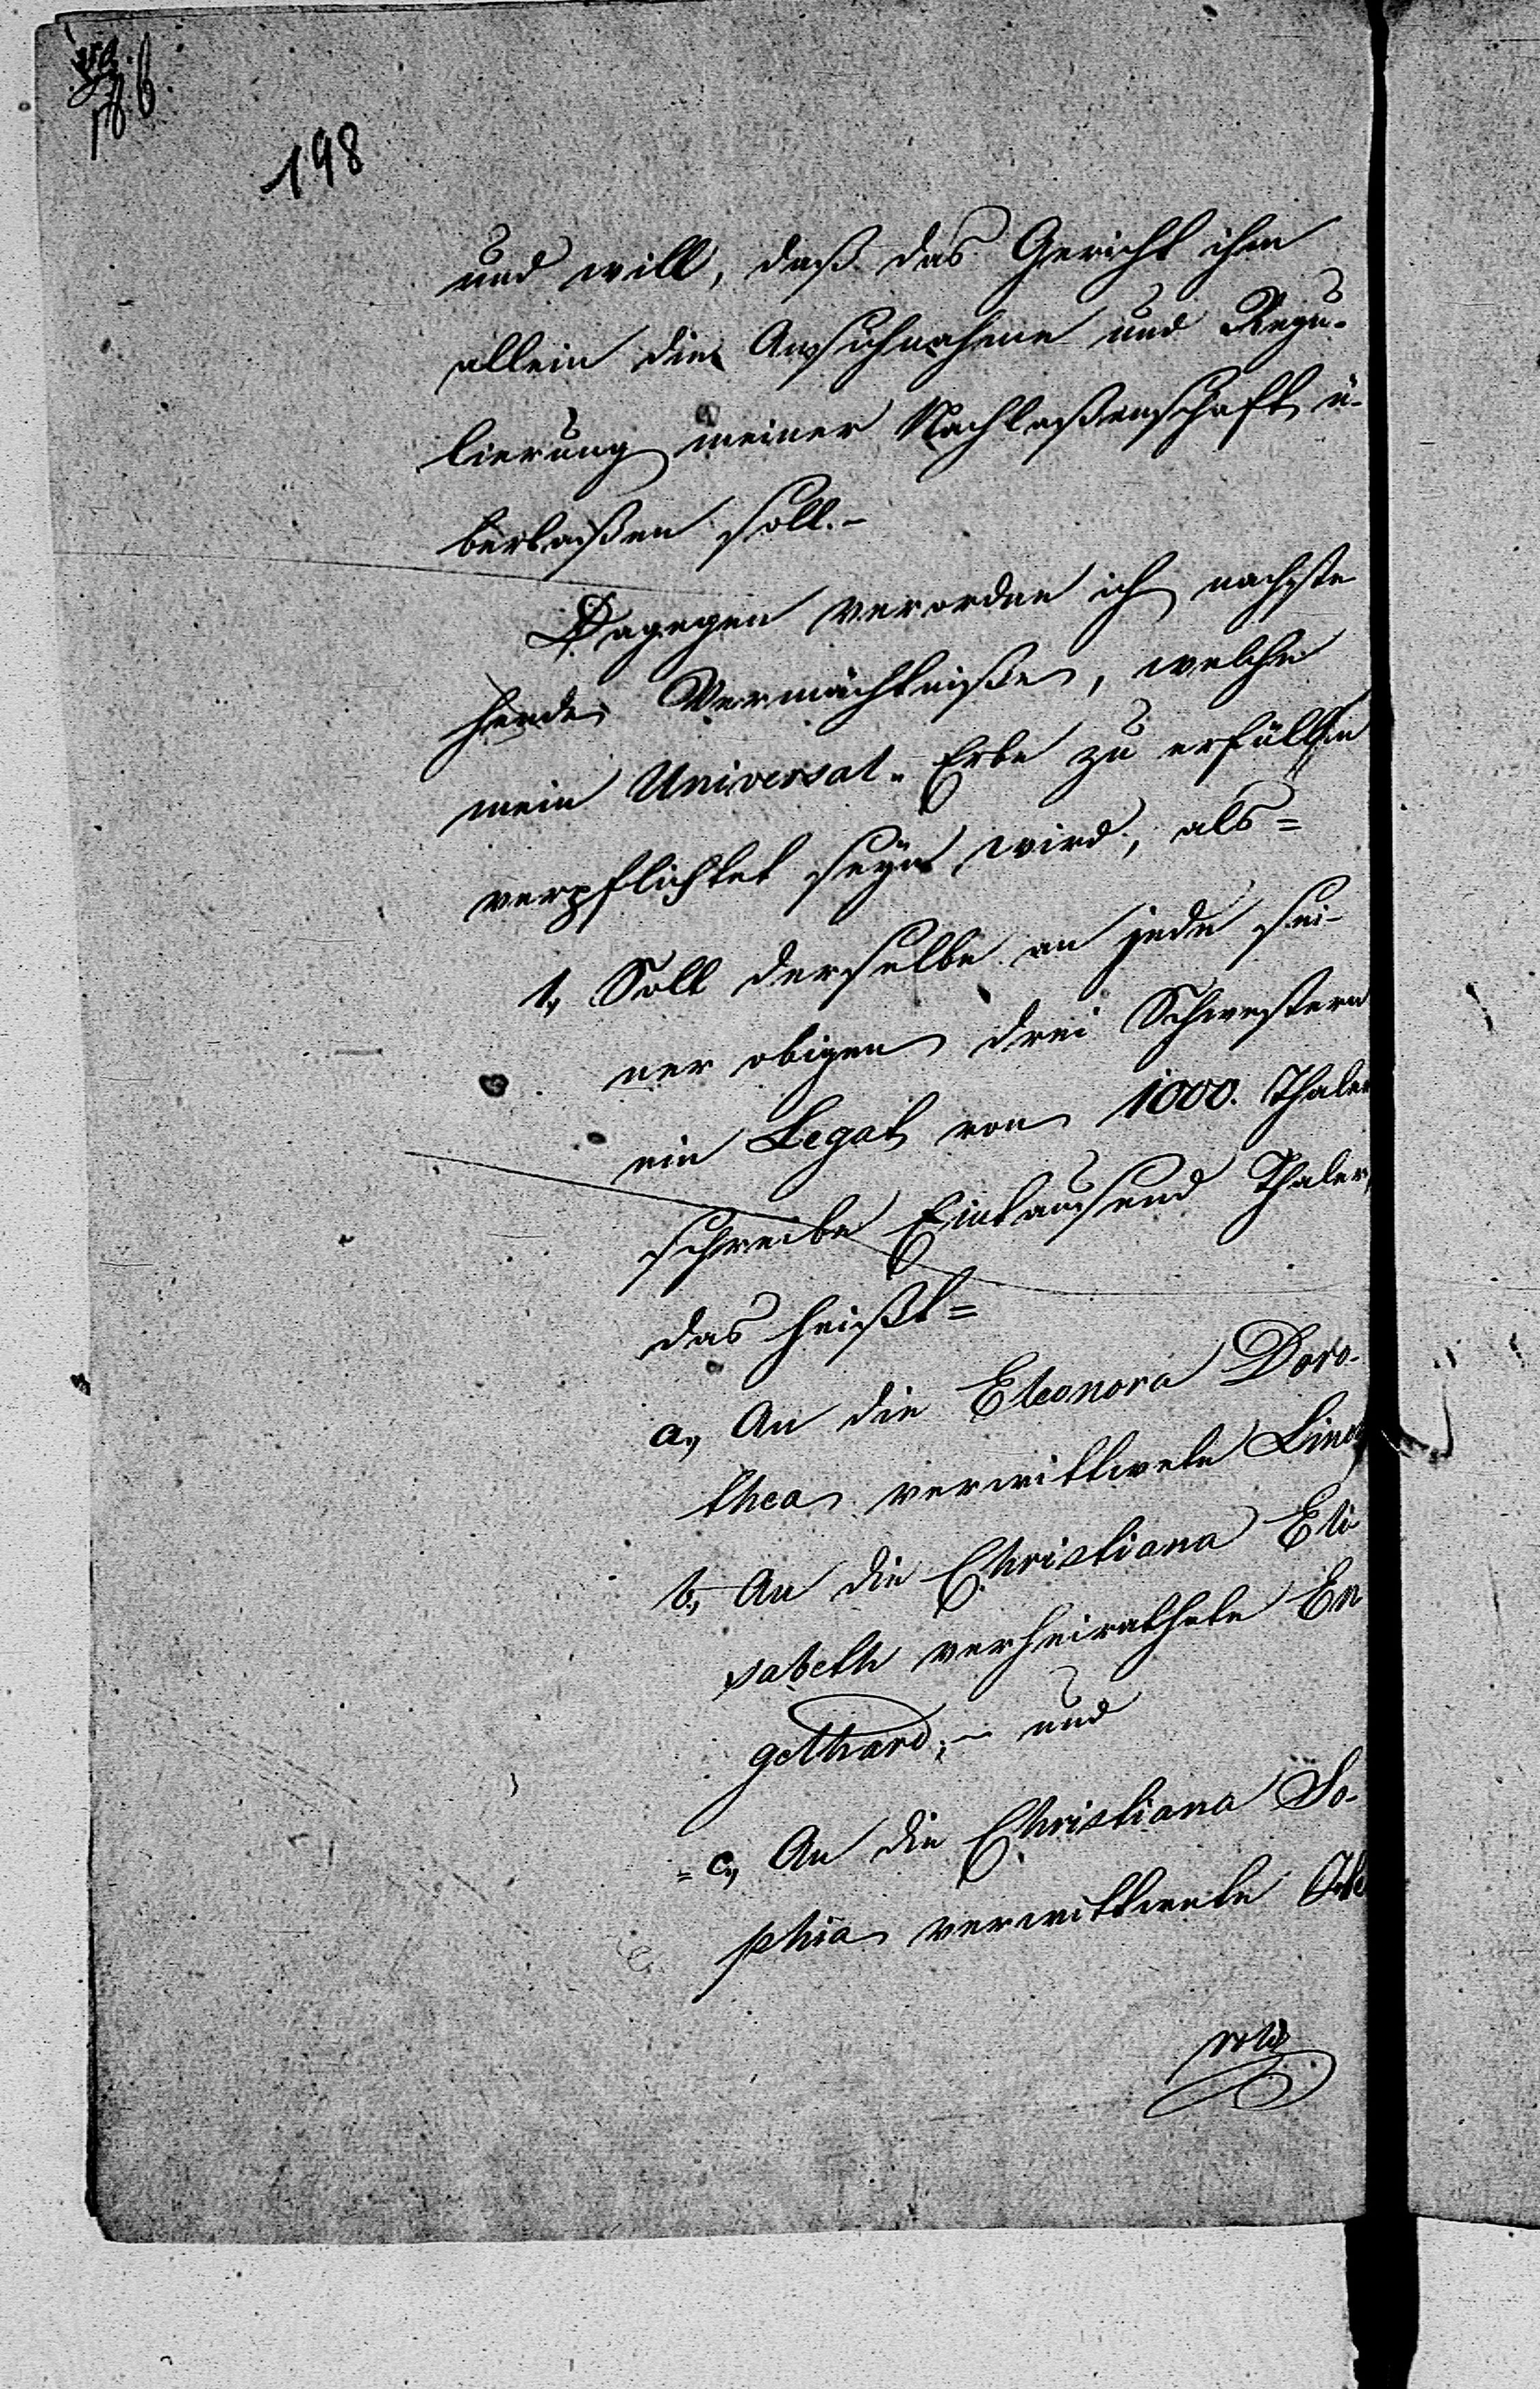 198
und will, daß das Gericht ihm
allein die Ansichnahme und Regu-
lierung meiner Nachlaßenschaft ü-
berlaßen soll.-
Dagegen verordne ich nachste
hende Vermächtniße, welche
mein Universal-Erbe zu erfüllen
verpflichtet seyn wird, als=
1, Soll derselbe an jede sei-
ner obigen drei Schwestern
ein Legat von 1000. Thaler
schreibe Eintausend Thaler,
das heißt=
a, An die Eleonora Doro-
thea verwittwete
b, An die Christiana Eli
sabeth verheirathete En
gelhard;- und
c, An die Christiana So-
phia verwittwete